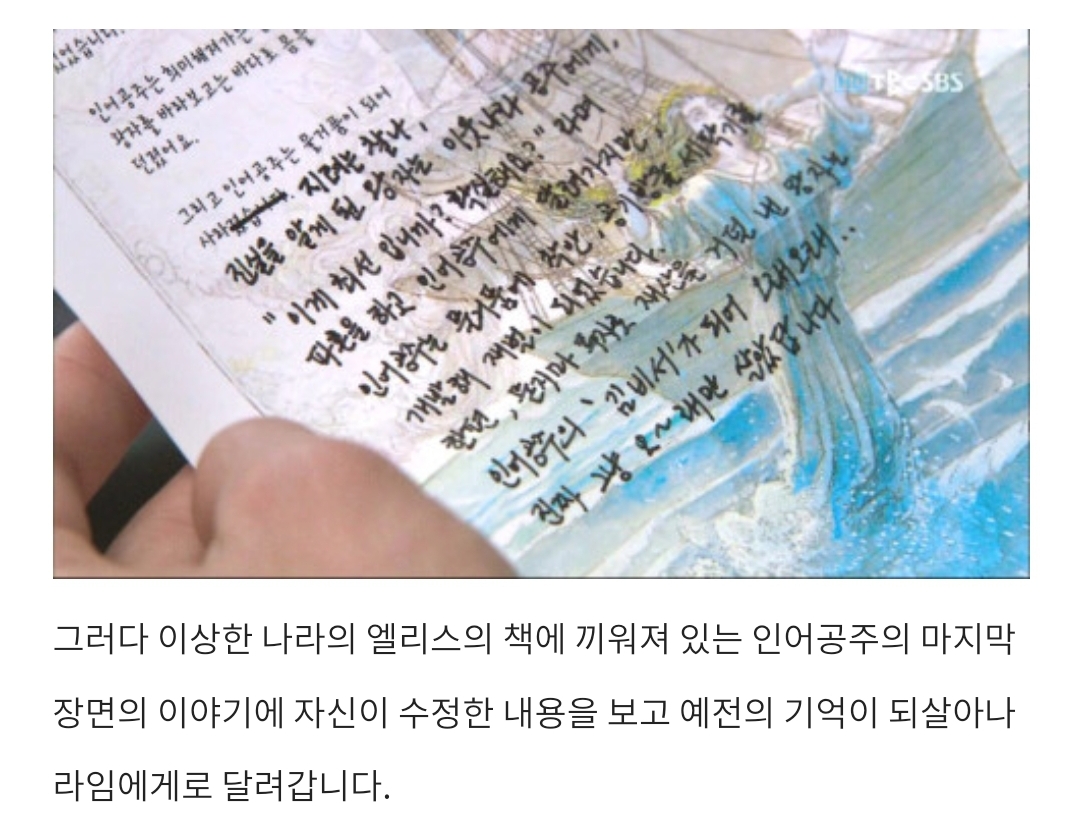 있었습니다.
인어공주는 희미해져가는
왕자를 바라보고는 바다로 몸을
던졌어요.
그리고 인어공주는 물거품이 되어
사라 지려는 찰나,
진실을 알게 된 왕자는 이웃나라 공주에게,
"이게 최선 입니까? 확실해요?" 라며
파혼을 하고 인어공주에게 달려가지만
인어공주는 물거품에 착안, 공기방울 세탁기를
개발해 재벌이 되었습니다.
한편, 투자로 재산을 거덜 낸 왕자는
인어공주의 '김비서'가 되어 오래오래..
진짜 그냥 오~래만 살았답니다
SBS
그러다 이상한 나라의 엘리스의 책에 끼워져 있는 인어공주의 마지막
장면의 이야기에 자신이 수정한 내용을 보고 예전의 기억이 되살아나
라임에게로 달려갑니다.